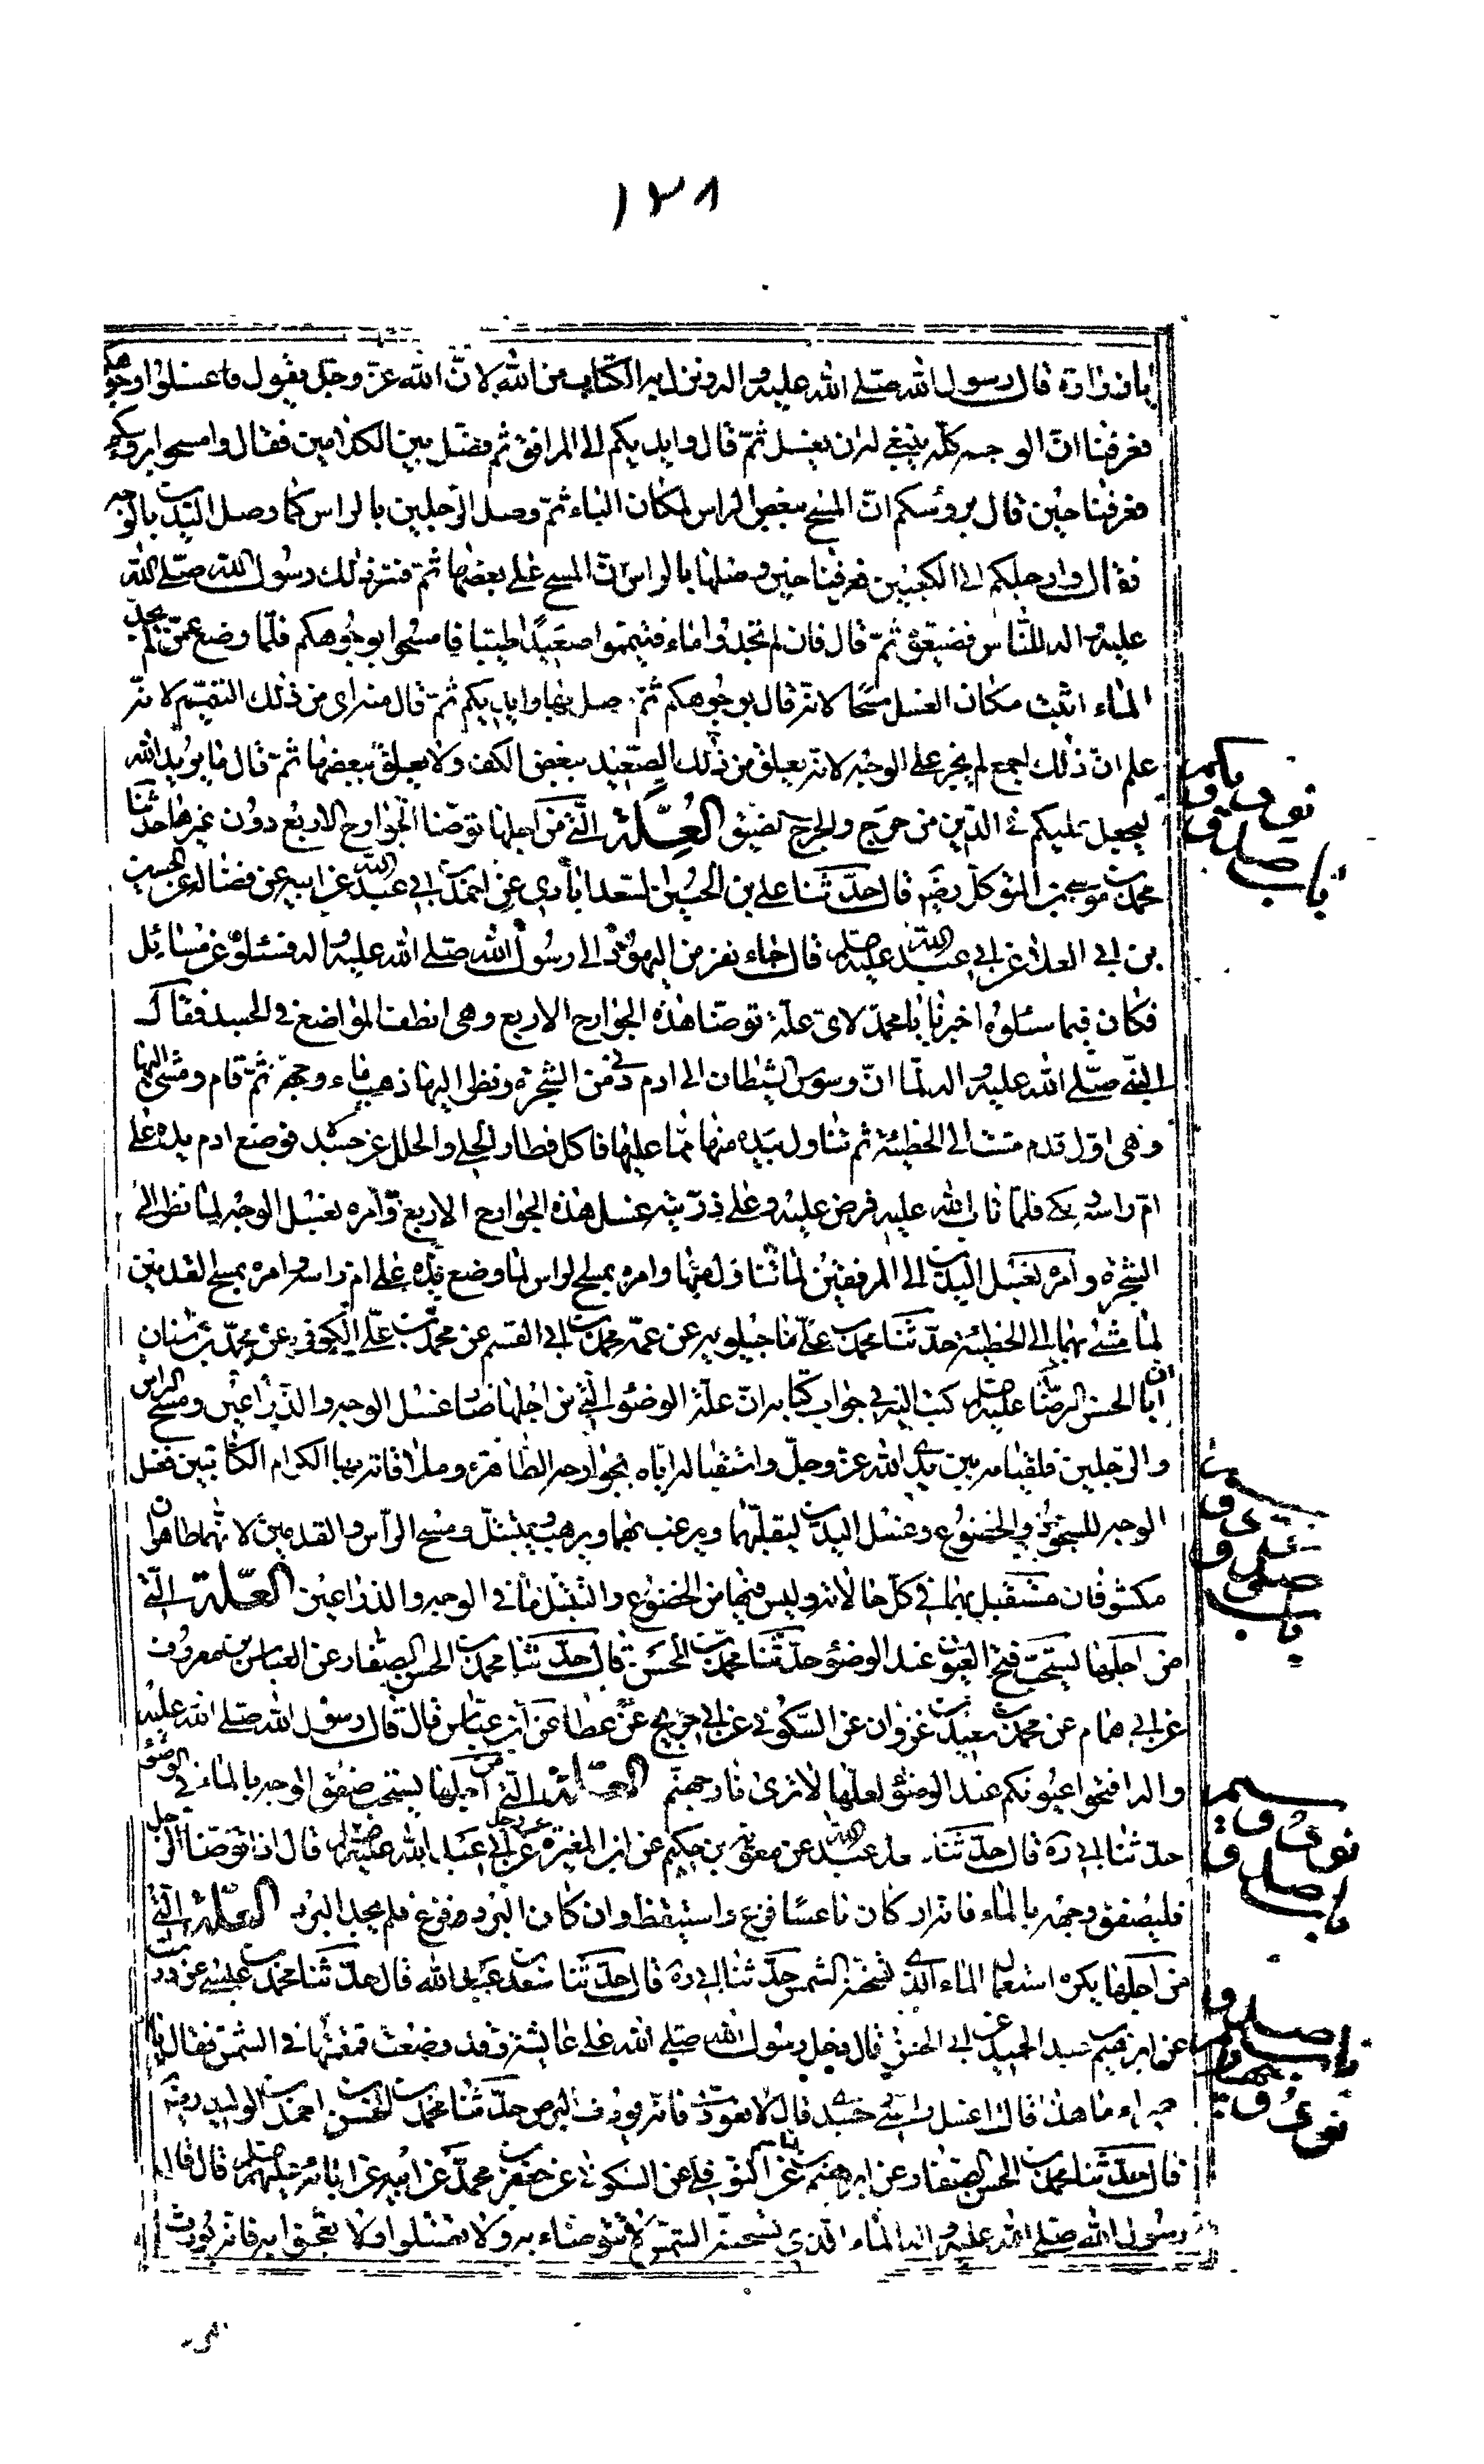 ١٣٨
يا زرارة قال رسول الله صلى الله عليه واله ونزل به الكتاب من الله لان الله عز وجل يقول فاغسلوا وجوهكم
فعرفنا ان الوجه كله ينبغي له ان يغسل ثم قال وايديكم الى المرافق ثم فصل بين الكلامين فقال وامسحوا برؤسكم
فعرفنا حين قال برؤسكم ان المسح ببعض الراس لمكان الباء ثم وصل الرجلين بالراس كما وصل اليدين بالوجه
فقال وارجلكم الى الكعبين فعرفنا حين وصلها بالراس ان المسح على بعضها ثم فسر ذلك رسول الله صلى الله
عليه واله للناس فضيعوه ثم قال فان لم تجدوا ماء فتيمموا صعيدا طيبا فامسحوا بوجوهكم فلما وضع عمن لم يجد
الماء اثبت مكان الغسل مسحا لانه قال بوجوهكم ثم وصل بها وايديكم ثم قال منه اي من ذلك التيمم لانه
علم ان ذلك اجمع لم يجر على الوجه لانه يعلق من ذلك الصعيد ببعض الكف ولا يعلق ببعضها ثم قال ما يريد الله
ليجعل عليكم في الدين من حرج والحرج الضيق العلة التي من اجلها توضا الجوارح الاربع دون غيرها حدثنا
محمد بن موسى بن المتوكل رضه قال حدثنا علي بن الحسين السعدابادي عن احمد بن ابي عبد الله عن ابيه عن فضالة عن الحسين
بن ابي العلاء عن ابي عبد الله عليه السلم قال جاء نفر من اليهود الى رسول الله صلى الله عليه واله فسئلوه عن مسائل
فكان فيما سئلوه اخبرنا يا محمد لاي علة توضا هذه الجوارح الاربع وهي انظف المواضع في الجسد فقال
النبي صلى الله عليه واله لما ان وسوس الشيطان الى ادم دنى من الشجرة ونظر اليها ذهب ماء وجهه ثم قام ومشى اليها
وهي اول قدم مشت الى الخطيئة ثم تناول بيده منها مما عليها فاكل فطار الحلي والحلل عن جسده فوضع ادم يده على
ام راسه وبكى فلما تاب الله عليه فرض عليه وعلى ذريته غسل هذه الجوارح الاربع وامره بغسل الوجه لما نظر الى
الشجرة وامره بغسل اليدين الى المرفقين لما تناول منها وامره بمسح الراس لما وضع يده على ام راسه وامره بمسح القدمين
لما مشى بهما الى الخطيئة حدثنا محمد بن علي ماجيلويه عن عمه محمد بن ابي القسم عن محمد بن علي الكوفي عن محمد بن سنان
ان ابا الحسن الرضا عليه السلم كتب اليه في جواب كتابه ان علة الوضوء التي من اجلها صار غسل الوجه والذراعين ومسح الراس
والرجلين فلقيامه بين يدي الله عز وجل واستقباله اياه بجوارحه الظاهرة وملاقاته بها الكرام الكاتبين فغسل
الوجه للسجود والخضوع وغسل اليدين ليقلبهما ويرغب بهما ويرهب ويتبتل ومسح الراس والقدمين لانهما ظاهران
مكشوفان مستقبل بهما في كل حالاته وليس فيها من الخضوع والتبتل ما في الوجه والذراعين العلة التي
من اجلها يستحب فتح العيون عند الوضوء حدثنا محمد بن الحسن قال حدثنا محمد بن الحسن الصفار عن العباس بن معروف
عن ابي همام عن محمد بن سعيد بن غزوان عن السكوني عن ابن جريج عن عطا عن ابن عباس قال قال رسول الله صلى الله عليه
واله افتحوا عيونكم عند الوضوء لعلها لا ترى نار جهنم العلة التي من اجلها يستحب صفق الوجه بالماء في الوضوء
حدثنا ابي ره قال حدثنا عبد الله عن معوية بن حكيم عن ابن المغيرة عن رجل عن ابي عبد الله عليه السلم قال اذا توضا الرجل
فليصفق وجهه بالماء فانه ان كان ناعسا فزع واستيقظ وان كان البرد فزع فلم يجد البرد العلة التي
من اجلها يكره استعمال الماء الذي تسخنه الشمس حدثنا ابي ره قال حدثنا سعد بن عبد الله قال حدثنا محمد بن عيسى عن درست
عن ابرهيم بن عبد الحميد عن ابي الحسن قال دخل رسول الله صلى الله على عايشة وقد وضعت قمقمتها في الشمس فقال يا
حميراء ما هذا قالت اغسل راسي وجسدي قال لا تعودي فانه يورث البرص حدثنا محمد بن الحسن بن احمد بن الوليد رضه
قال حدثنا محمد بن الحسن الصفار عن ابرهيم بن هاشم عن النوفلي عن السكوني عن جعفر بن محمد عن ابيه عن ابائه عليهم السلم قال قال
رسول الله صلى الله عليه واله الماء الذي تسخنه الشمس لا تتوضاء به ولا تغتسلوا ولا تعجنوا به فانه يورث